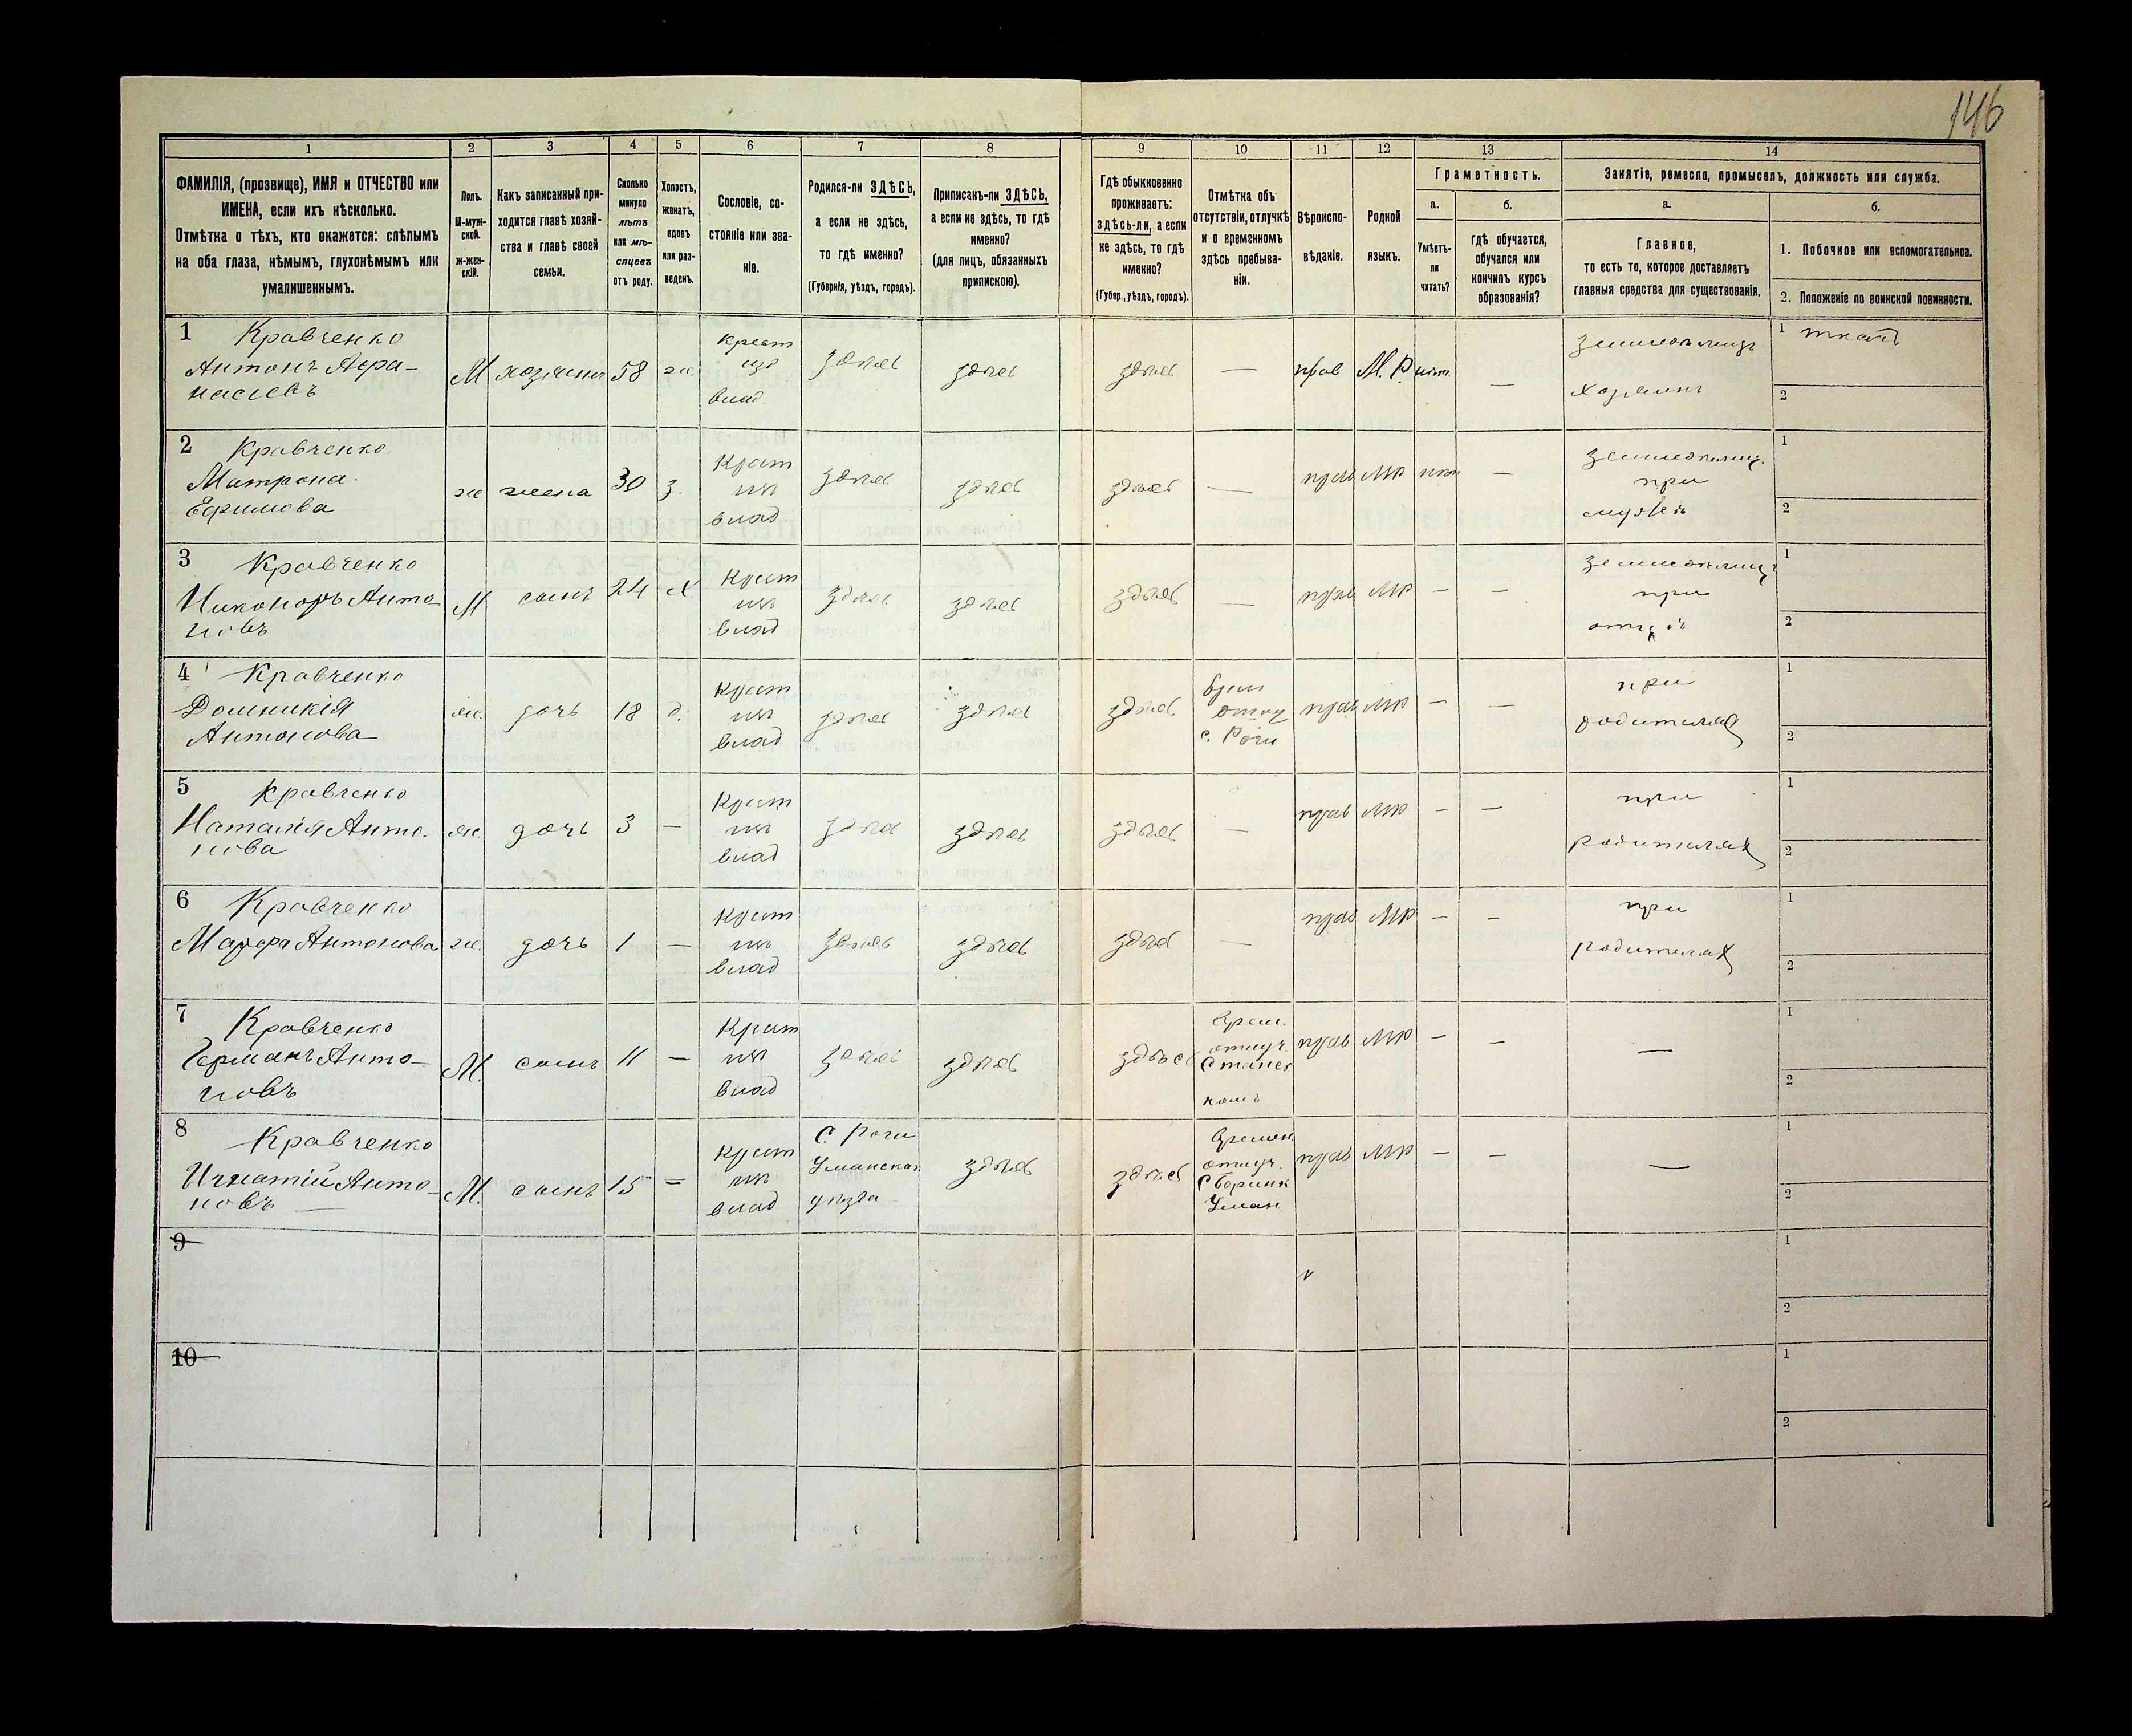 146
1 2 3 4 5 6 7 8 9 10 11 12 13 14
ФАМИЛІЯ, (прозвище), ИМЯ и ОТЧЕСТВО или
ИМЕНА, если ихъ нѣсколько.
Отмѣтка о тѣхъ, кто окажется: слѣпымъ
на оба глаза, нѣмымъ, глухонѣмымъ или
умалишеннымъ.
Полъ.
М-муж-
ской.
ж-жен-
скій.
Какъ записанный при-
ходится главѣ хозяй-
ства и главѣ своей
семьи.
Сколько
минуло
лѣтъ
или мѣ-
сяцевъ
отъ роду.
Холостъ,
женатъ,
вдовъ
или раз-
веденъ.
Сословіе, со-
стояніе или зва-
ніе.
Родился-ли ЗДѢСЬ,
а если не здѣсь,
то гдѣ именно?
(Губернія, уѣздъ, городъ).
Приписанъ-ли ЗДѢСЬ,
а если не здѣсь, то гдѣ
именно?
(для лицъ, обязанныхъ
припискою).
Гдѣ обыкновенно
проживаетъ:
здѣсь-ли, а если
не здѣсь, то гдѣ
именно?
(Губер., уѣздъ, городъ).
Отмѣтка объ
отсутствіи, отлучкѣ
и о временномъ
здѣсь пребыва-
ніи.
Вѣроиспо-
вѣданіе.
Родной
языкъ.
Грамотность.
а.
Умѣетъ-
ли
читать?
б.
гдѣ обучается,
обучался или
кончилъ курсъ
образованія?
Занятіе, ремесло, промыселъ, должность или служба.
а.
Главное,
то есть то, которое доставляетъ
главныя средства для существованія.
б.
1. Побочное или вспомогательное.
2. Положеніе по воинской повинности.
1 Кравченко
Антонъ Афа-
насіевъ
М хозяинъ 58 ж.
крест
изъ
влад.
здѣсь здѣсь здѣсь — прав М.Р. нѣт. —
земледѣлецъ
хозяинъ
1 ткачъ
2
2 Кравченко
Матрона
Ефимова
ж жена 30 з.
Крест
изъ
влад
здѣсь здѣсь здѣсь — прав МР нѣт —
земледѣлец.
при
мужѣ
1
2
3 Кравченко
Никоноръ Анто-
новъ
М сынъ 24 х
Крест
изъ
влад
здѣсь здѣсь здѣсь — прав МР — —
земледѣлецъ
при
отцѣ
1
2
4 Кравченко
Домникія
Антонова
ж. дочь 18 д.
Крест
изъ
влад
здѣсь здѣсь здѣсь
врем
отлуч
с. Роги
прав МР — —
при
родителях
1
2
5 Кравченко
Наталія Анто-
нова
ж. дочь 3 —
Крест
изъ
влад
здѣсь здѣсь здѣсь — прав МР — —
при
родителях
1
2
6 Кравченко
Марфа Антонова
ж. дочь 1 —
Крест
изъ
влад
здѣсь здѣсь здѣсь — прав МР — —
при
родителях
1
2
7 Кравченко
Германъ Анто-
новъ
М. сынъ 11 —
Крест
изъ
влад
здѣсь здѣсь здѣсь
Врем.
отлуч.
прав МР — — —
1
2
8 Кравченко
Игнатій Анто-
новъ —
М. сынъ 15 —
Крест
изъ
влад
С. Роги
Уманскаго
уѣзда
здѣсь здѣсь
Времен
отлуч.
Уман
прав МР — — —
1
2
9
1
2
10
1
2